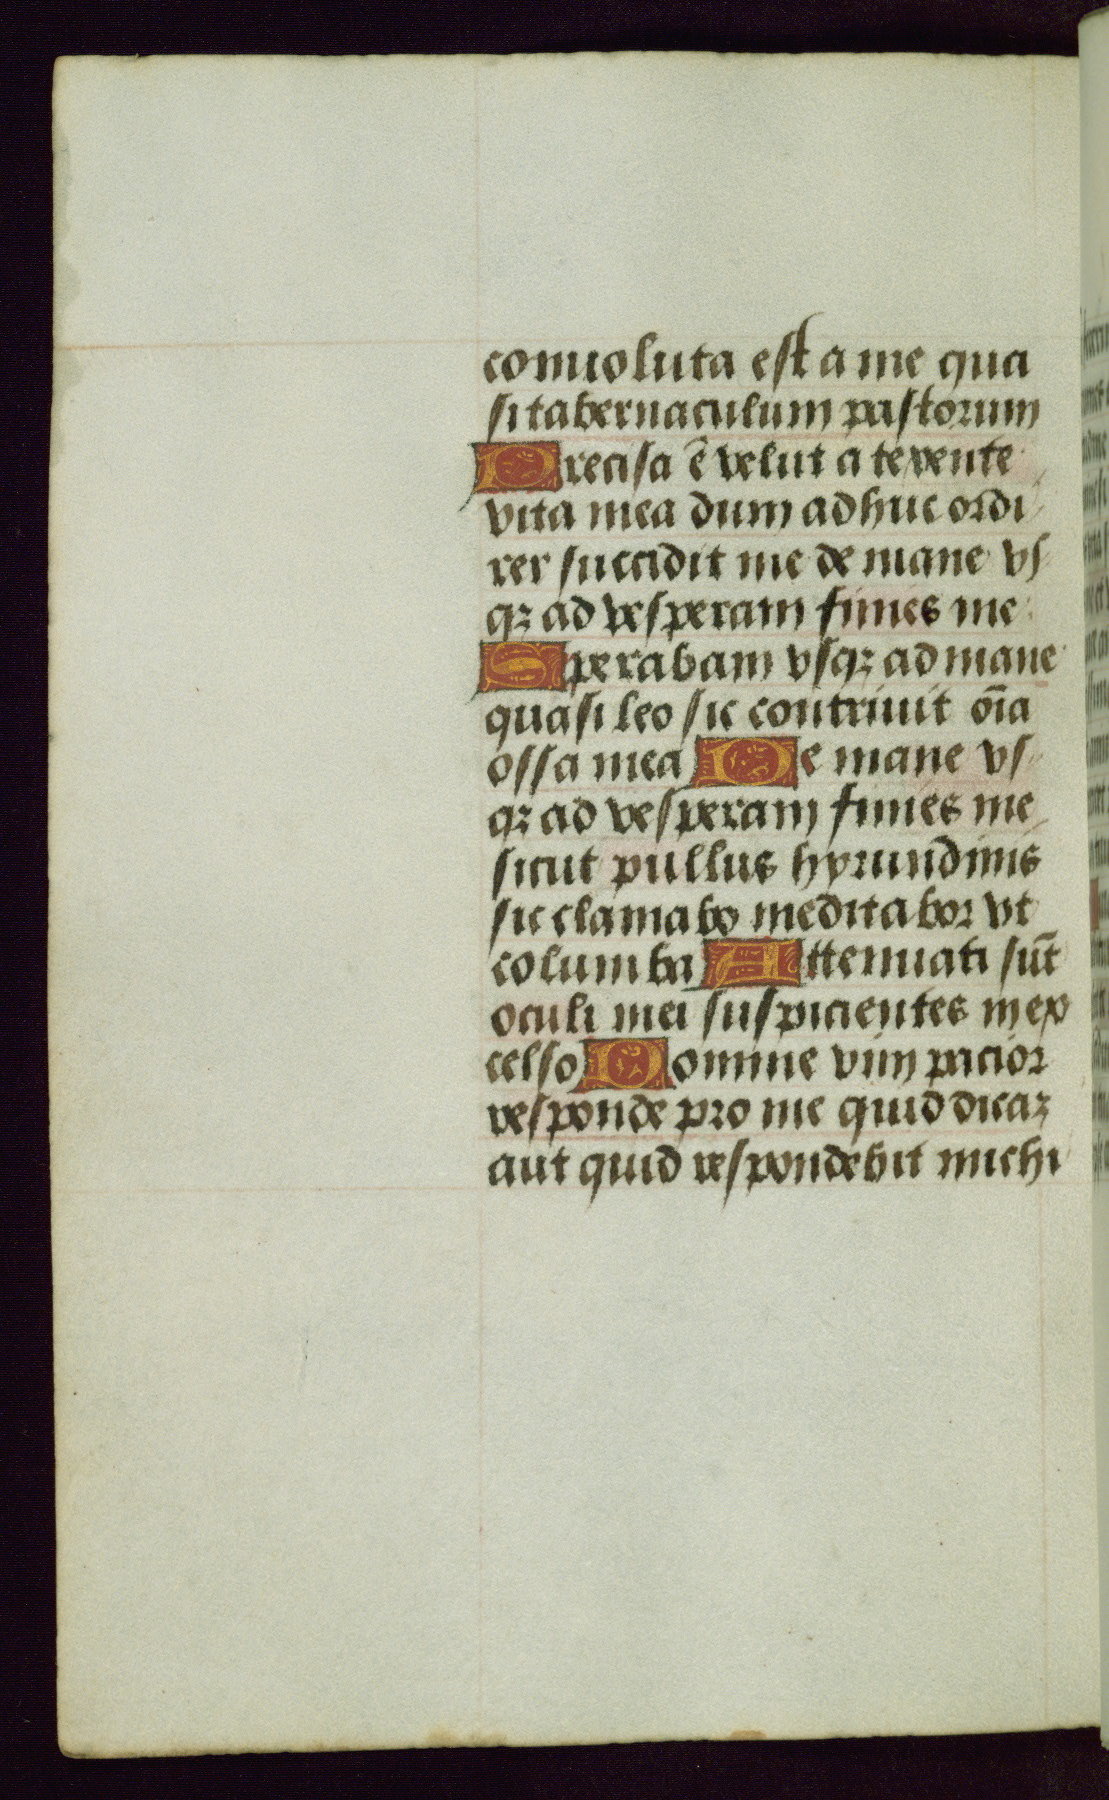 conuoluta est a me qua
si tabernaculum pastorum
Precisa ē velut a texente
vita mea dum adhuc ordi
rer succidit me de mane vs
qꝫ ad vesperam finies me
Sperabam vsqꝫ ad mane
quasi leo sic contriuit oīa
ossa mea De mane vs
qꝫ ad vesperam finies me
sicut pullus hyrundinis
sic clamabo meditabor vt
columba Attenuati sūt
oculi mei suspicientes in ex
celso Domine vim pacior
responde pro me quid dicaꝫ
aut quid respondebit michi